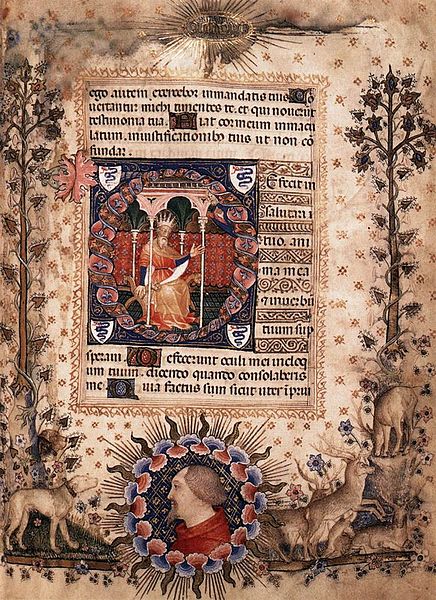 ego autem exercebor in mandatis tuis Cõ
vertantur michi timentes te. et qui noverũt
testimonia tua. Fiat cor meum inmacu
latum. in iustificationibȝ tuis ut non cõ
fundar.
DEfecit in
salutari
tuo. ani
ma mea
tuum sup
speravi. Defecerunt oculi mei in eloq
uium tuum. dicentes quando consolaberis
me. Quia factus sum sicut uter ĩ prui